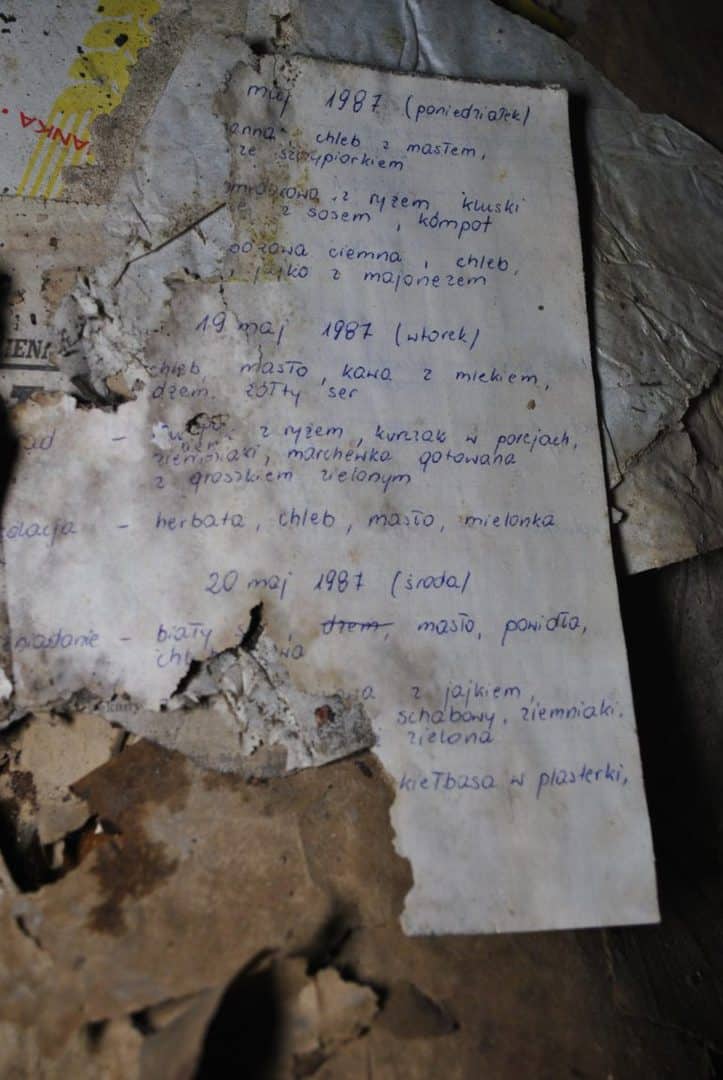 ANKA
maj 1987 (poniedziałek)
chleb z masłem,
ze szczypiorkiem
z ryżem kluski
z sosem, kompot
ciemna, chleb,
jajko z majonezem
19 maj 1987 (wtorek)
chleb masło, kawa z mlekiem,
dżem. żółty ser
- z ryżem, kurczak w porcjach,
ziemniaki, marchewka gotowana
z groszkiem zielonym
olacja - herbata, chleb, masło, mielonka
20 maj 1987 (środa)
niadanie - biały dżem, masło, powidła,
z jajkiem,
schabowy, ziemniaki.
zielona
kiełbasa w plasterki,